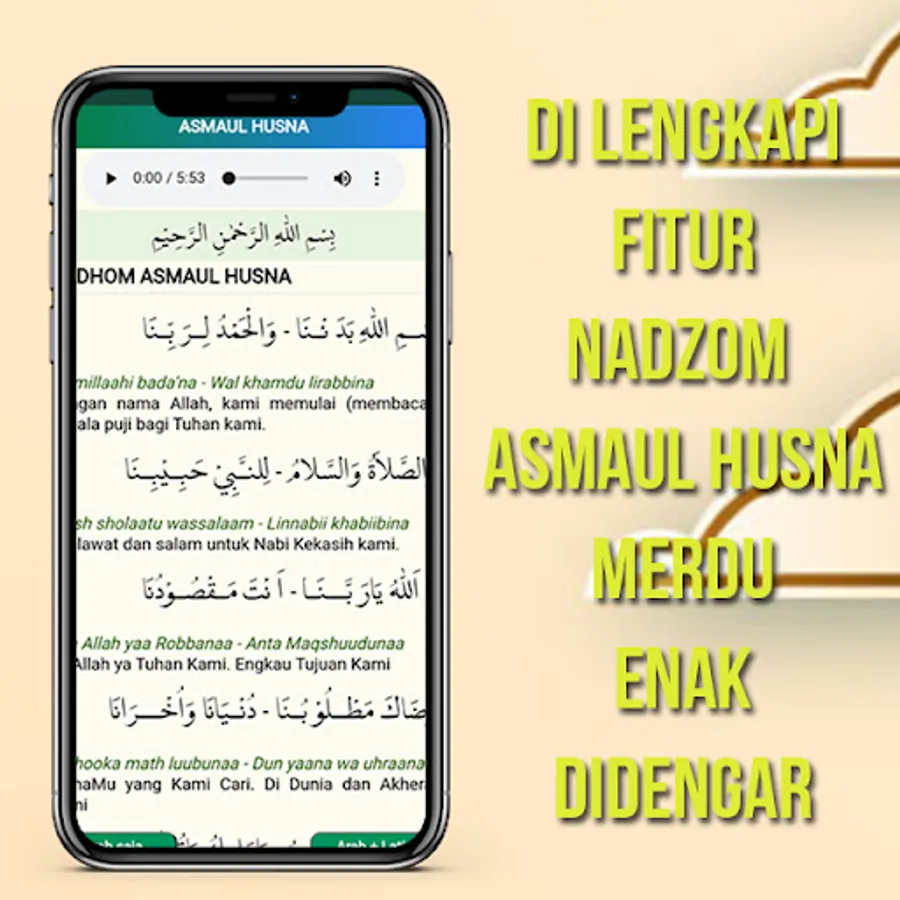 ASMAUL HUSNA
0:00 / 5:53
بِسْمِ اللهِ الرَّحْمٰنِ الرَّحِيْمِ
DHOM ASMAUL HUSNA
ـسْـمِ اللهِ بَدَ نْـنَا - وَالْحَمْدُ لِـرَبِّـنَا
millaahi bada'na - Wal khamdu lirabbina
ngan nama Allah, kami memulai (membaca
ala puji bagi Tuhan kami.
الصَّلَاةُ وَالسَّلَامُ - لِلنَّـبِيْ حَبِـيْبِـنَا
sh sholaatu wassalaam - Linnabii khabiibina
lawat dan salam untuk Nabi Kekasih kami.
اَللهُ يَارَ بَّـنَـا - اَ نْتَ مَـقْصُـوْدُنَا
Allah yaa Robbanaa - Anta Maqshuudunaa
Allah ya Tuhan Kami. Engkau Tujuan Kami
ضَاكَ مَطْـلُـوْ بُـنَا - دُنْـيَانَا وَاُخْــرَانَا
hooka math luubunaa - Dun yaana wa uhraana
naMu yang Kami Cari. Di Dunia dan Akher
ni
Arab + Lati
DI LENGKAPI
FITUR
NADZOM
ASMAUL HUSNA
MERDU
ENAK
DIDENGAR